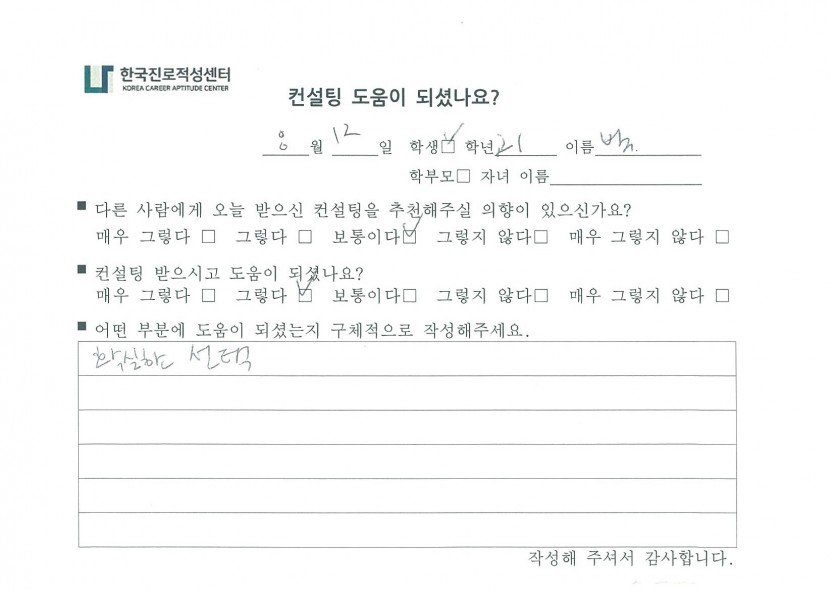 한국진로적성센터
KOREA CAREER APTITUDE CENTER
컨설팅 도움이 되셨나요?
8월 12일 학생☑ 학년 고1 이름
학부모□ 자녀 이름
■ 다른 사람에게 오늘 받으신 컨설팅을 추천해주실 의향이 있으신가요?
매우 그렇다 □ 그렇다 □ 보통이다☑ 그렇지 않다□ 매우 그렇지 않다 □
■ 컨설팅 받으시고 도움이 되셨나요?
매우 그렇다 □ 그렇다 ☑ 보통이다□ 그렇지 않다□ 매우 그렇지 않다 □
■ 어떤 부분에 도움이 되셨는지 구체적으로 작성해주세요.
확실한 선택
작성해 주셔서 감사합니다.